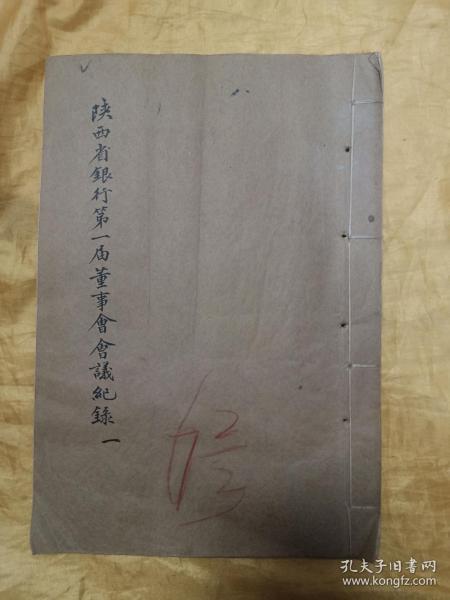 陕西省銀行第一届董事會會議紀錄 一
孔夫子旧书网
www.kongfz.com